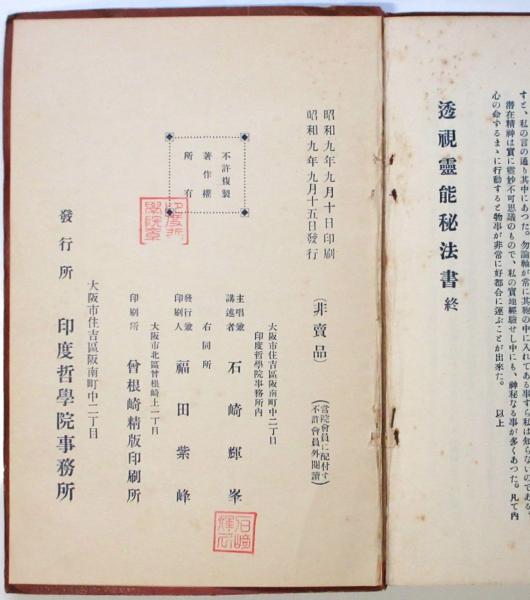 すと、私の言の通り其中にあつた。勿論軸が常に其物の中に入れてある事すら私は知らないのである。
潜在精神は實に靈妙不可思議のもので、私の實地經驗せし中にも、神秘なる事が多くあつた。凡て内
心の命ずるまゝに行動すると物事が非常に好都合に運ぶことが出來た。 以上
透視靈能秘法書 終
昭和九年九月十日印刷
昭和九年九月十五日發行
(非賣品)
(當院會員に配付す
不許會員外閲讀)
不許複製
著作權
所有
大阪市住吉區阪南町中二丁目
印度哲學院事務所内
主唱兼
講述者 石崎輝峯
右同所
發行兼
印刷人 福田紫峰
大阪市北區曾根崎上二丁目
印刷所 曾根崎精版印刷所
大阪市住吉區阪南町中二丁目
發行所 印度哲學院事務所
印度哲
學院章